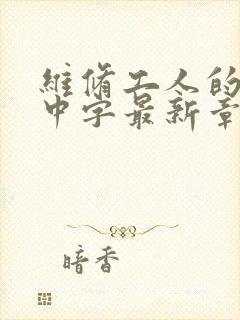 維脩工人的
中字最新章
暗香